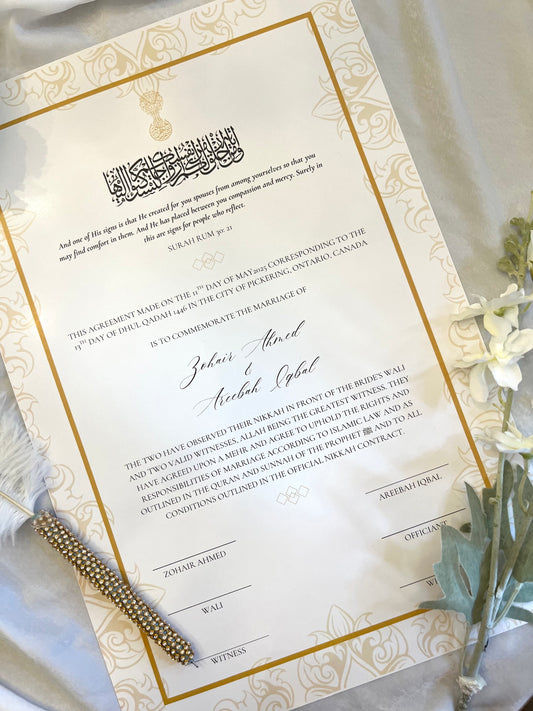 ومن آياته أن خلق لكم من أنفسكم أزواجا لتسكنوا إليها
And one of His signs is that He created for you spouses from among yourselves so that you
may find comfort in them. And He has placed between you compassion and mercy. Surely in
this are signs for people who reflect.
SURAH RUM 30: 21
THIS AGREEMENT MADE ON THE 11TH DAY OF MAY 2025 CORRESPONDING TO THE
13TH DAY OF DHUL QADAH 1446 IN THE CITY OF PICKERING, ONTARIO, CANADA
IS TO COMMEMORATE THE MARRIAGE OF
Zohair Ahmed
&
Areebah Iqbal
THE TWO HAVE OBSERVED THEIR NIKKAH IN FRONT OF THE BRIDE'S WALI
AND TWO VALID WITNESSES, ALLAH BEING THE GREATEST WITNESS. THEY
HAVE AGREED UPON A MEHR AND AGREE TO UPHOLD THE RIGHTS AND
RESPONSIBILITIES OF MARRIAGE ACCORDING TO ISLAMIC LAW AND AS
OUTLINED IN THE QURAN AND SUNNAH OF THE PROPHET ﷺ AND TO ALL
CONDITIONS OUTLINED IN THE OFFICIAL NIKKAH CONTRACT.
ZOHAIR AHMED
AREEBAH IQBAL
WALI
OFFICIANT
WITNESS